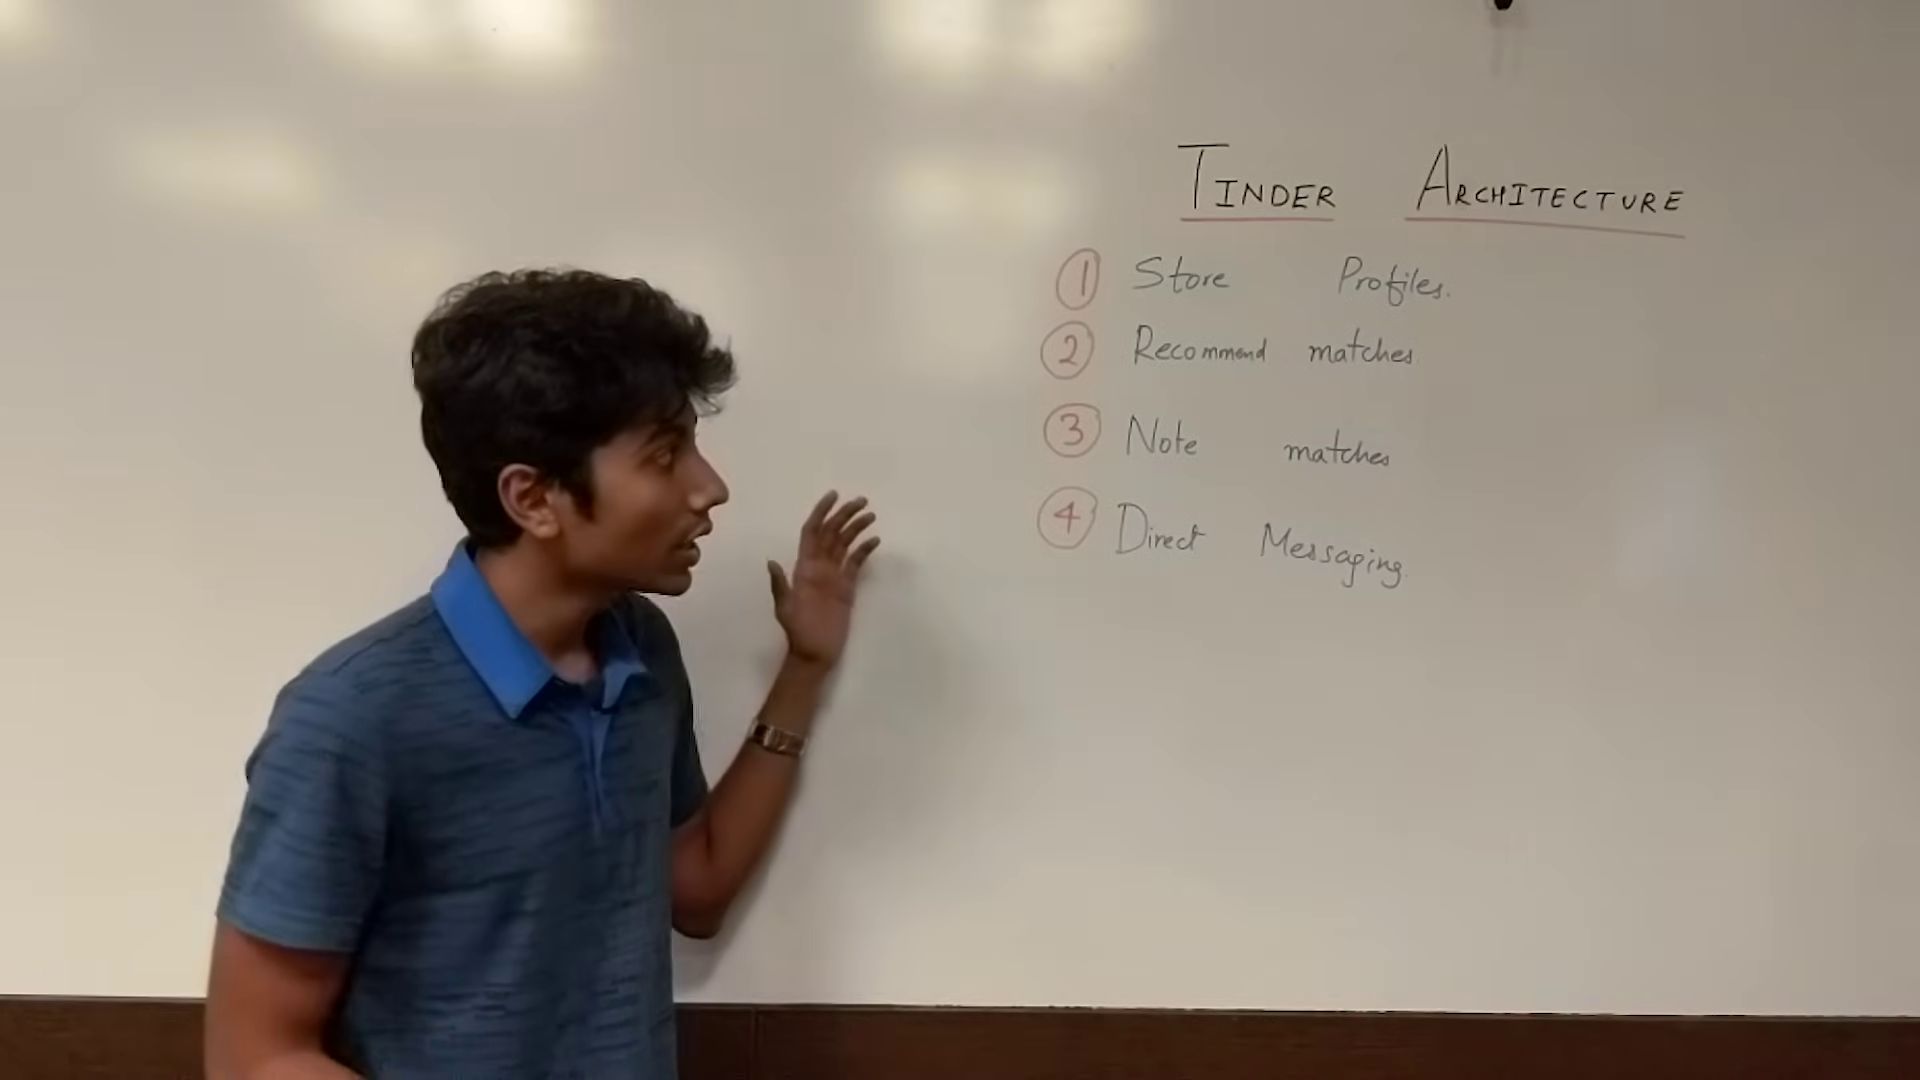 TINDER ARCHITECTURE
1 Store Profiles.
2 Recommend matches
3 Note matches
4 Direct Messaging.